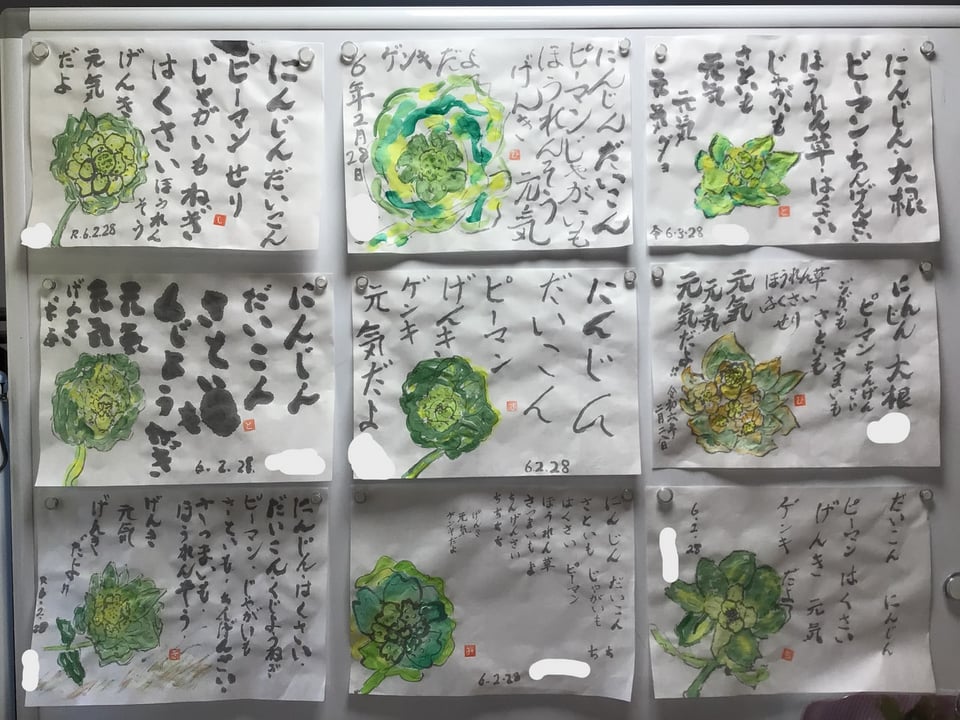 にんじんだいこん
ピーマン せり
じゃがいもねぎ
はくさいほうれんそう
げんき
元気
だよ
R.6.2.28
にんじんだいこん
ピーマンじゃがいも
ほうれんそう
げんき 元気
ゲンキだよ
6年2月28日
にんじん大根
ピーマン・ちんげんさい
ほうれん草・はくさい
じゃがいも
さといも
元気
元気
元気ダヨ
令6.3.28
にんじん
だいこん
さといも
元気
元気
げんき
だよ
6.2.28.
にんじん
だいこん
ピーマン
げんき
ゲンキ
元気だよ
6.2.28
にんじん 大根
ピーマンちんげんさい
じゃがいも さつまいも
さとも
ほうれん草
はくさい
せり
元気
元気
元気だよ!!
令和六年
二月二八日
にんじん・はくさい・
だいこん・くじょうねぎ
ピーマン じゃがいも
さといも・ちんげんさい
さつまいも・
ほうれんそう・
げんき
元気
げんき
だよ!!
R.6.2.28
にんじん だいこん
さといも じゃがいも
はくさい ピーマン
ほうれん草
さつまいも
ちんげんさい
げんき
元気
ゲンキだよ
6.2.28
だいこん にんじん
ピーマン はくさい
げんき 元気
ゲンキ だよ
6.2.28